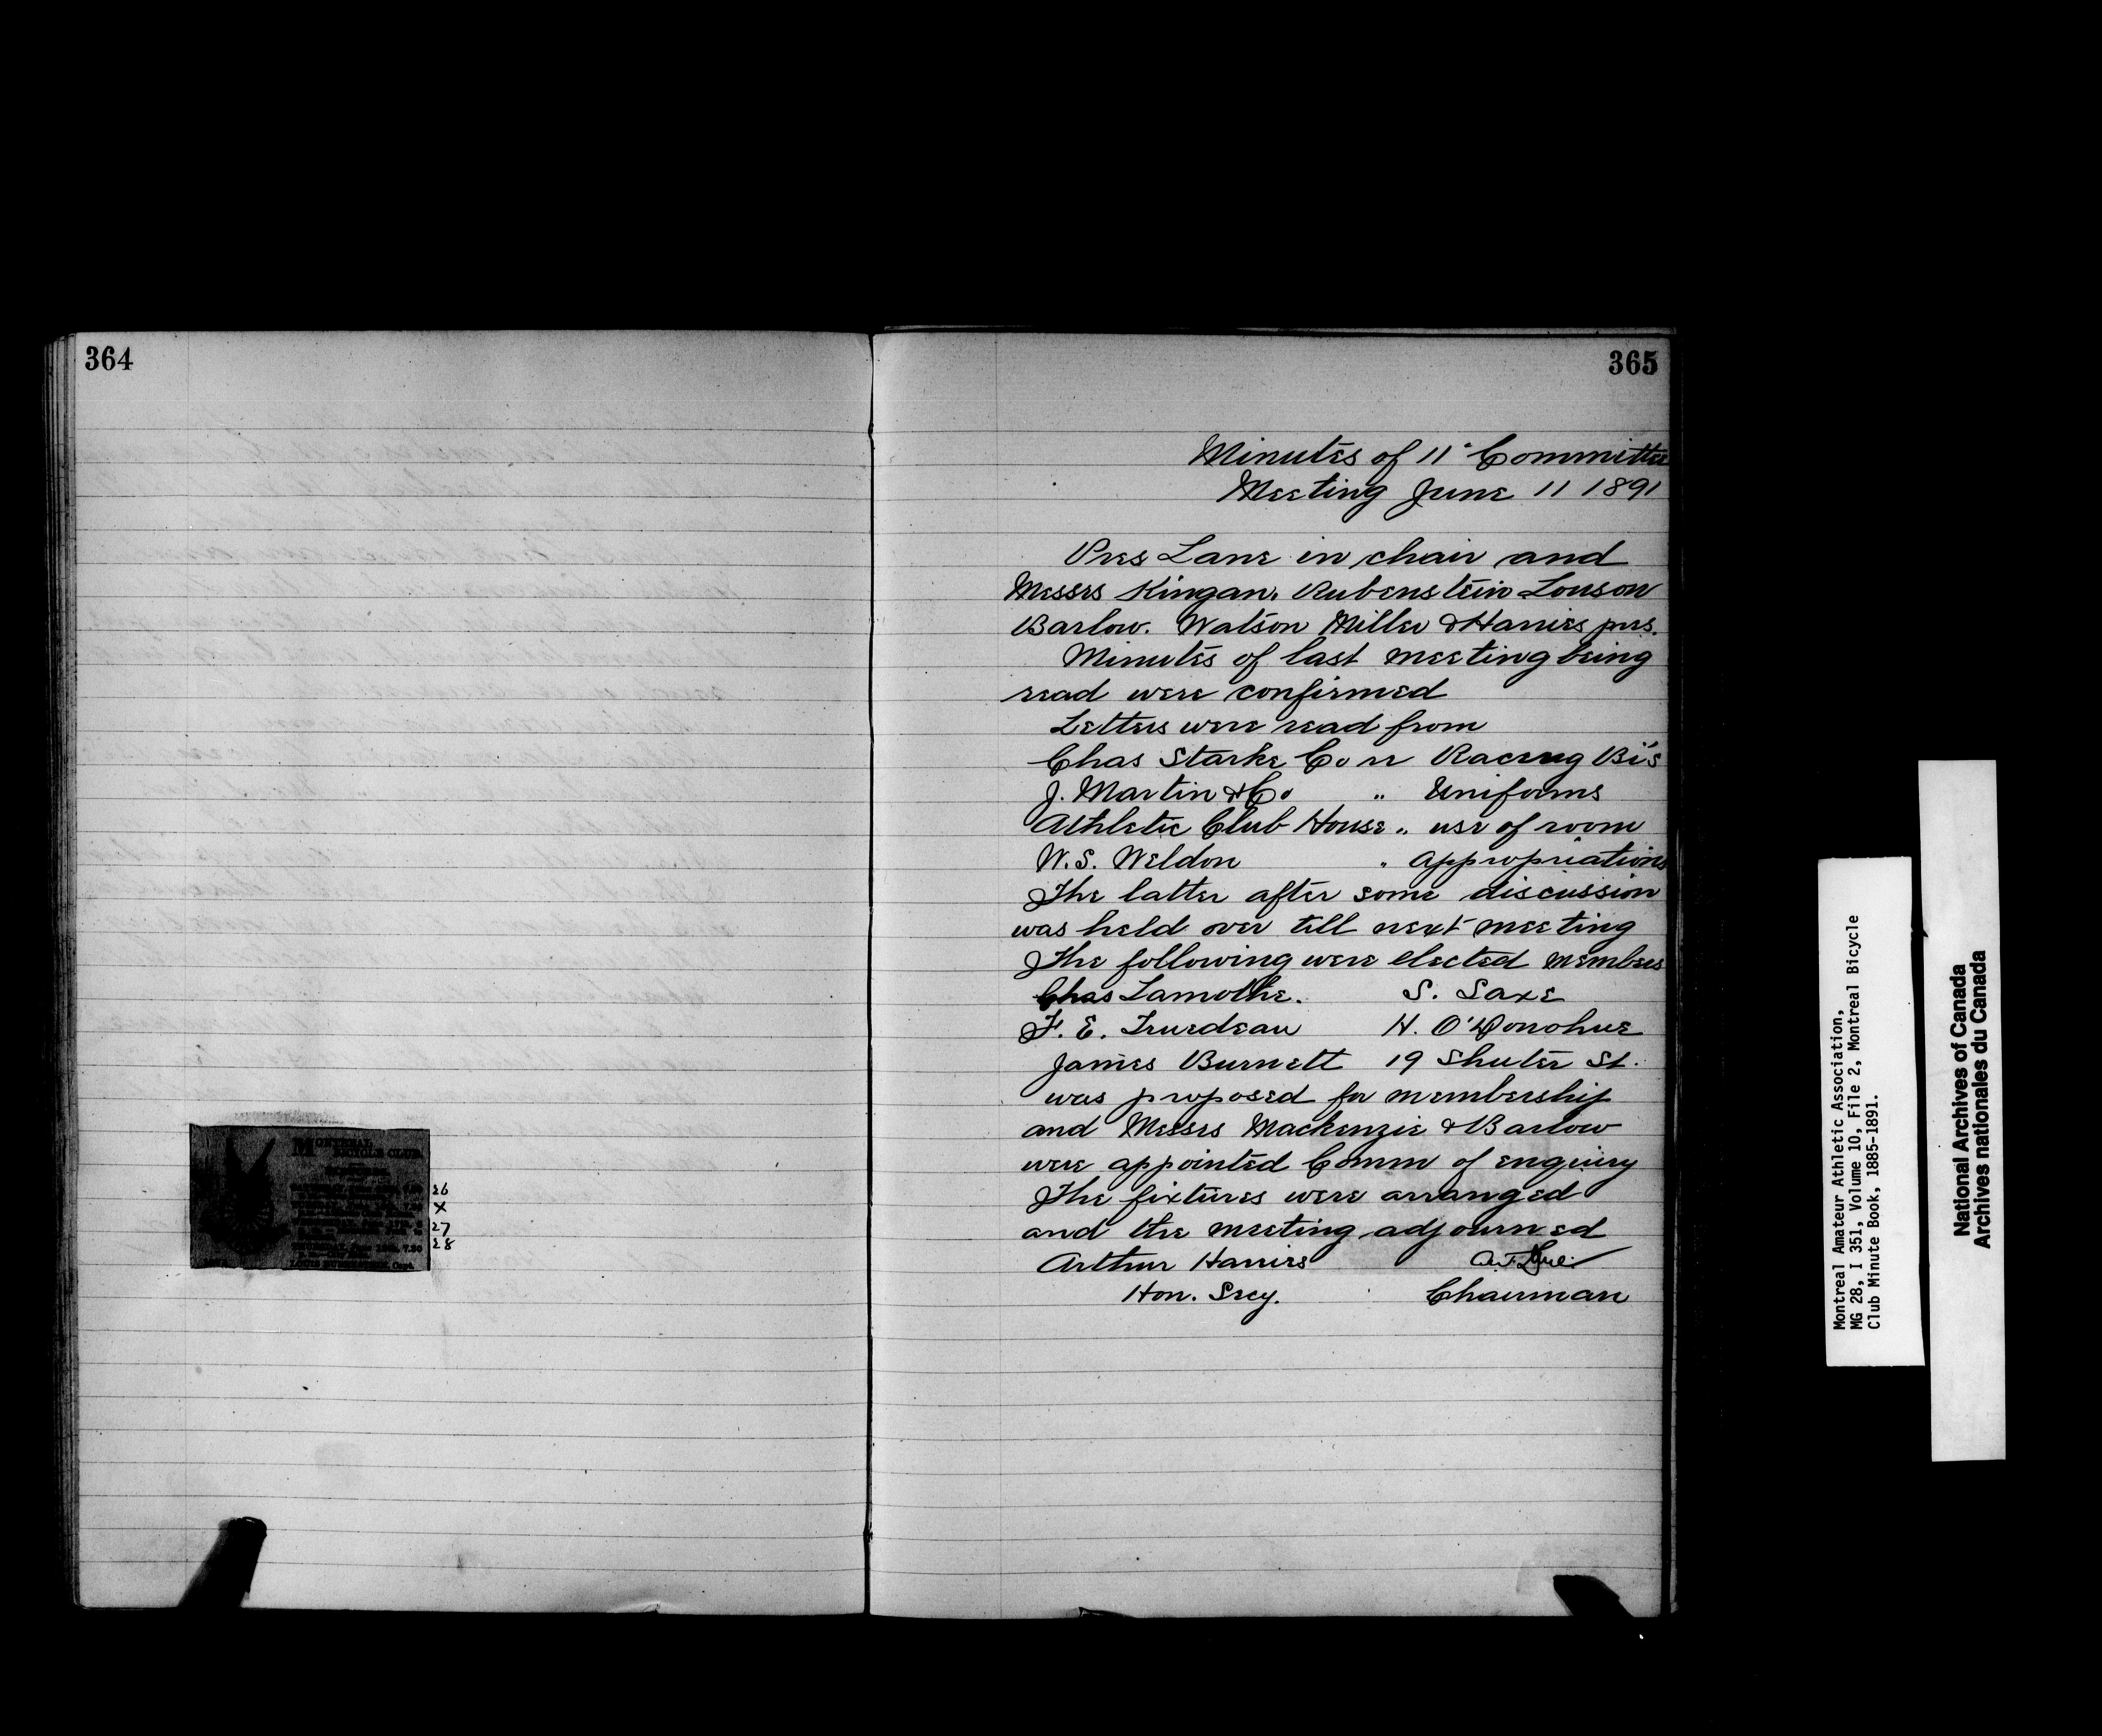 364
MONTREAL
BICYCLE CLUB
26
X
27
7.30 28
365
Minutes of 11" Committee
Meeting June 11 1891
Pres Lane in chair and
Messrs Kingan. Rubenstein Louson
Barlow. Watson Miller & Harries prs.
Minutes of last meeting being
read were confirmed
Letters were read from
Chas Starke Co re Racing Bi's
J. Martin & Co " Uniforms
Athletic Club House " use of room
W. S. Weldon " appropriations
The latter after some discussion
was held over till next meeting
The following were elected members
Chas Lamothe. S. Saxe
F. E. Trurdeau H. O'Donohue
James Burnett 19 Shuter St.
was proposed for membership
and Messrs Mackenzie & Barlow
were appointed Comm of enquiry
The fixtures were arranged
and the meeting adjourned
Arthur Harries
Hon. Secy. Chairman
Montreal Amateur Athletic Association,
MG 28, I 351, Volume 10, File 2, Montreal Bicycle
Club Minute Book, 1885-1891.
National Archives of Canada
Archives nationales du Canada